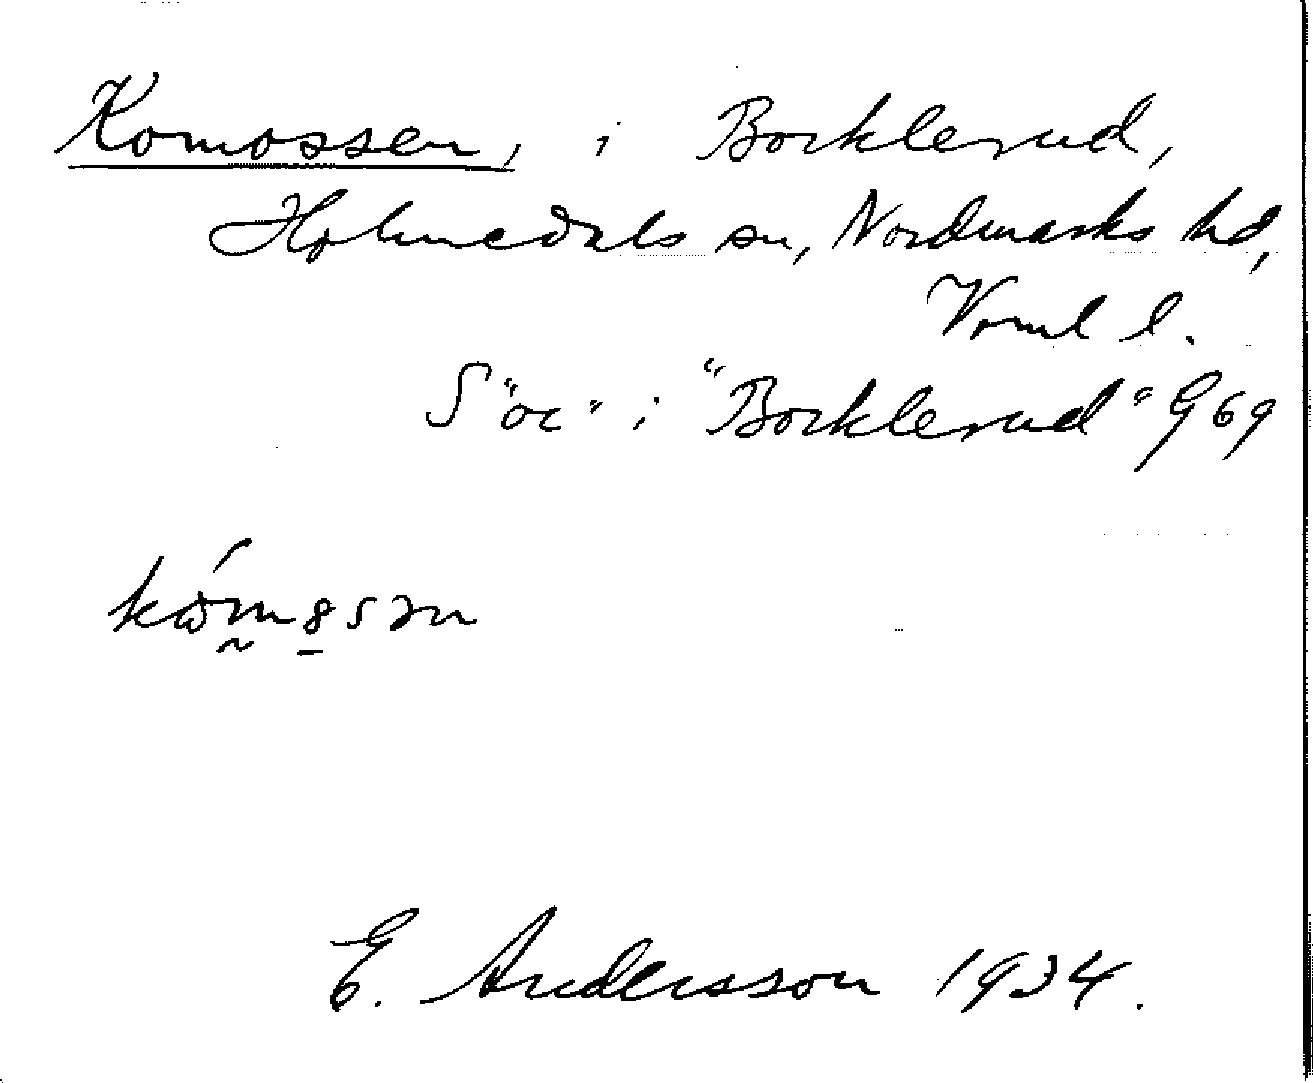 Komossen, i Bocklerud,
Holmedals sn, Nordmarks hd,
Värml l.
S "oc" i "Bocklerud" G 69
E. Andersson 1934.